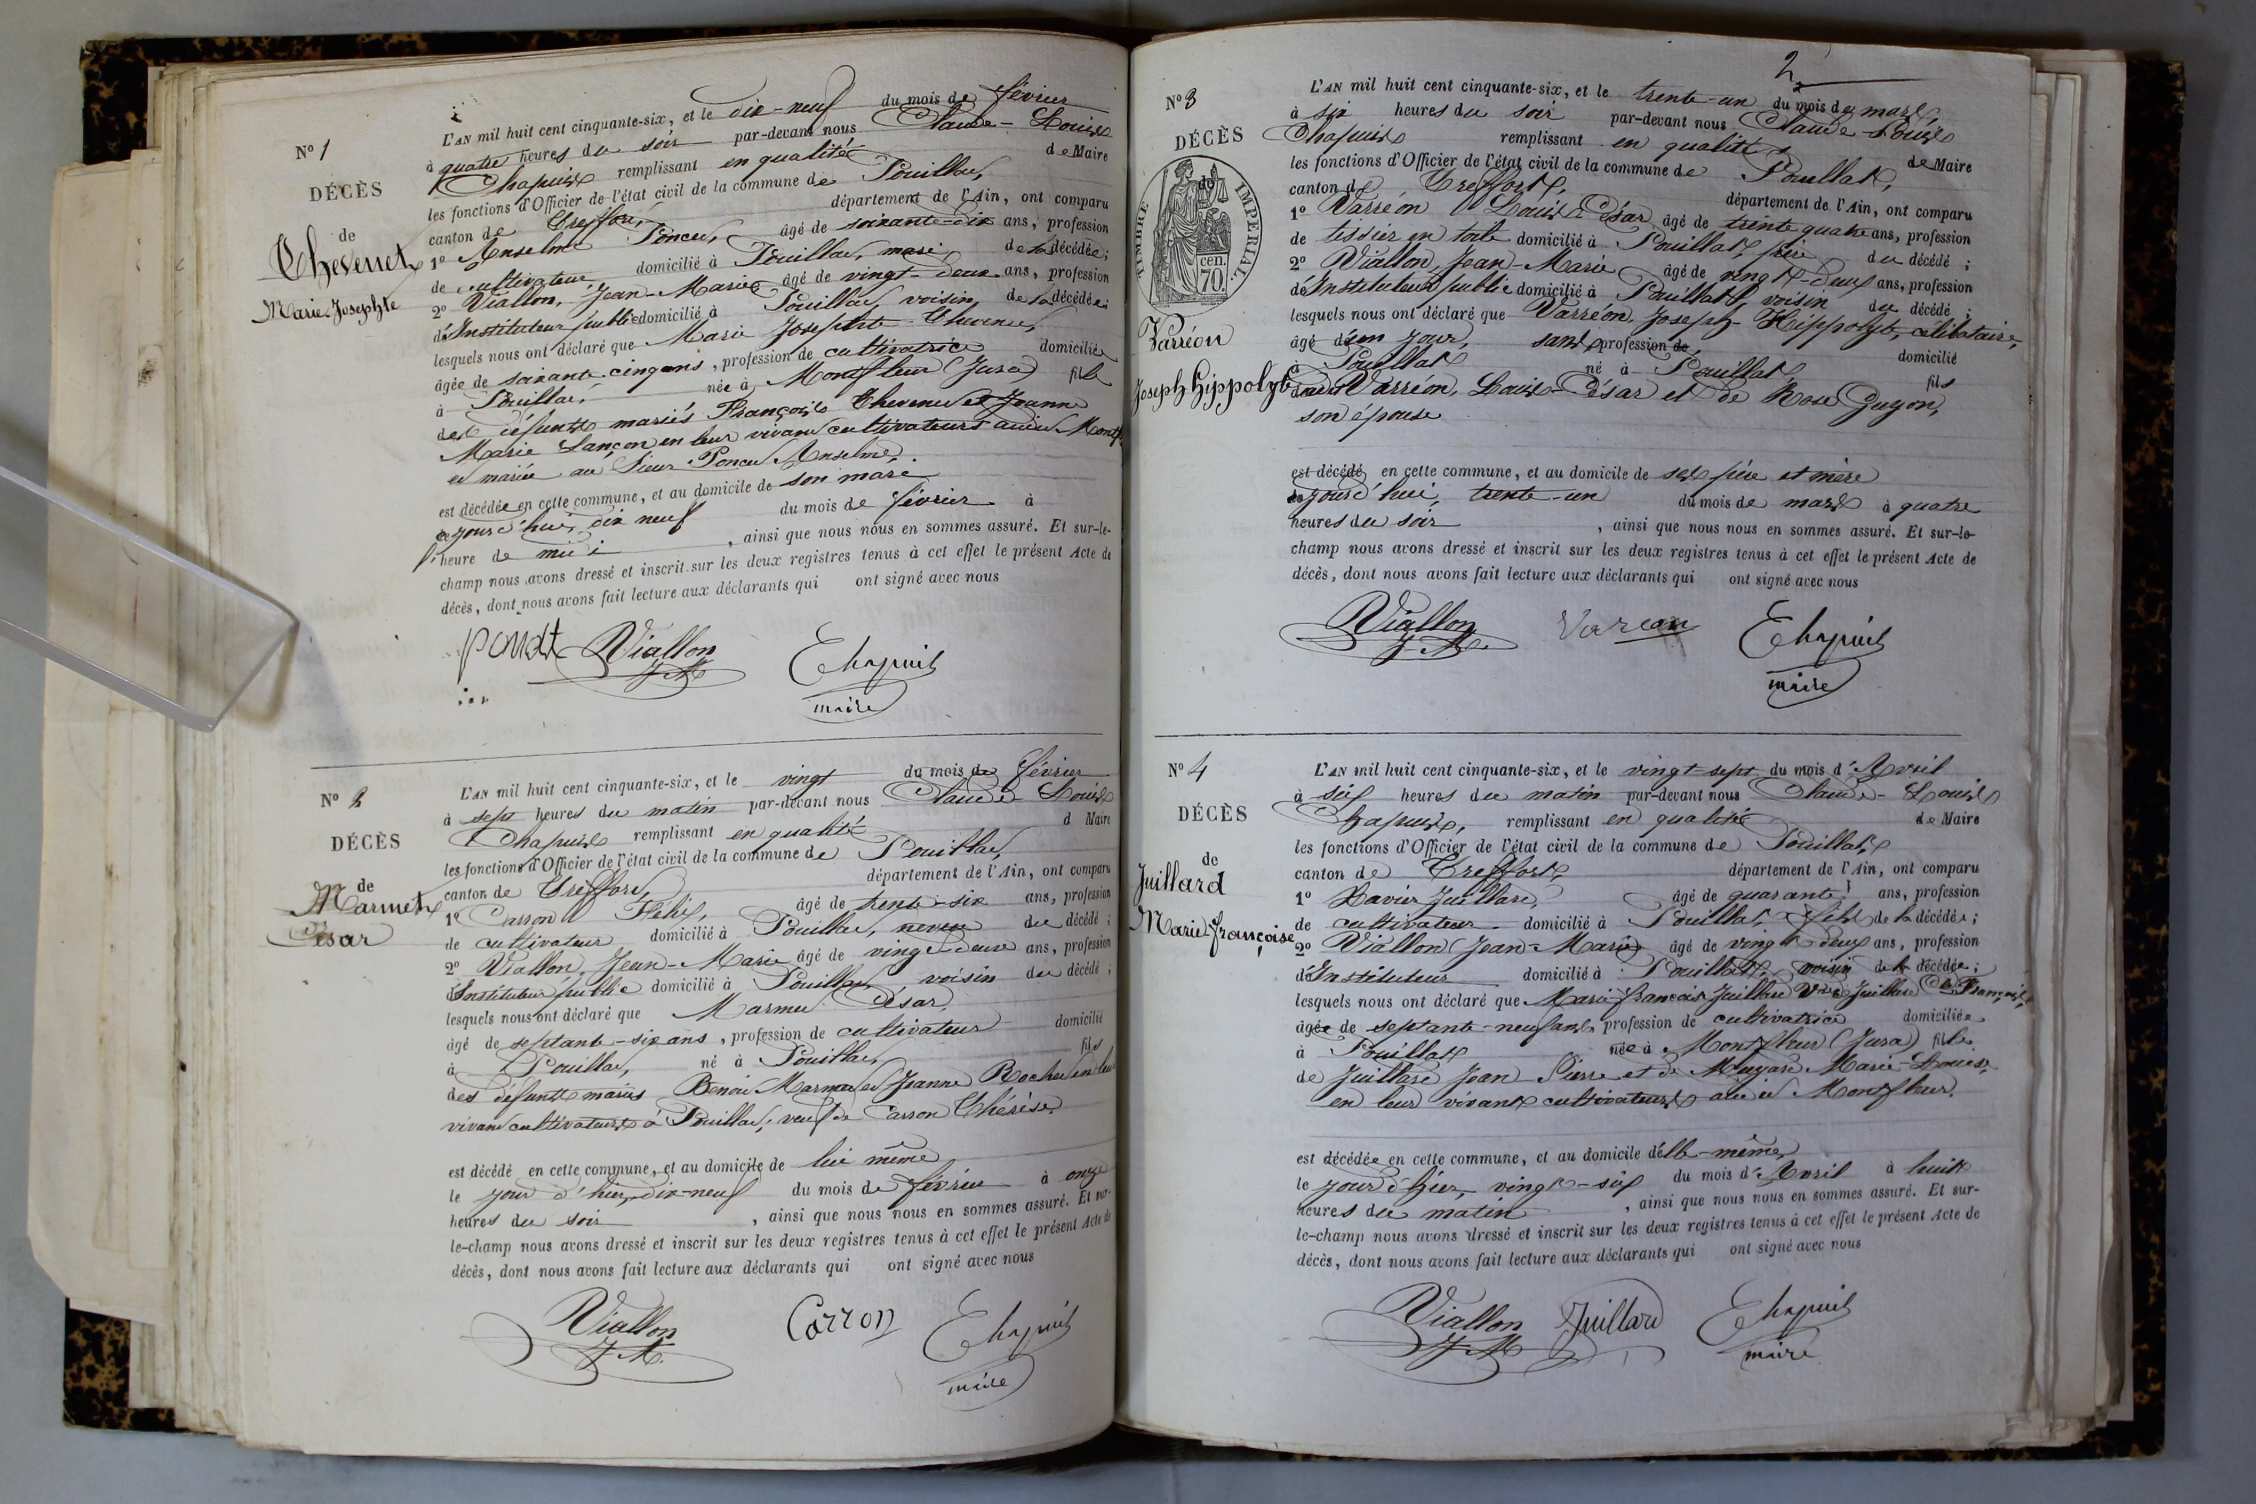 N° 1
DÉCÈS
de
Chevenet
Marie Josephte
L'AN mil huit cent cinquante-six, et le dix-neuf du mois de février
à quatre heures du soir par-devant nous Claude-Louis
Chapuis remplissant en qualité de Maire
les fonctions d'Officier de l'état civil de la commune de Pouillat,
canton de Treffort, département de l'Ain, ont comparu
1° Anselme Poncet, âgé de soixante-dix ans, profession
de cultivateur, domicilié à Pouillat, mari de la décédée;
2° Viallon, Jean-Marie âgé de vingt-deux ans, profession
d'Instituteur public domicilié à Pouillat, voisin de la décédée;
lesquels nous ont déclaré que Marie Josephte Chevenet,
âgée de soixante-cinq ans, profession de cultivatrice domiciliée
à Pouillat, née à Montfleur (Jura) fille
des défunts mariés François Chevenet et Jeanne
Marie Lançon en leur vivant cultivateurs audit
et mariée au Sieur Poncet Anselme.
est décédée en cette commune, et au domicile de son mari
ce jourd'hui, dix neuf du mois de février à
l'heure de midi, ainsi que nous nous en sommes assuré. Et sur-le-
champ nous avons dressé et inscrit sur les deux registres tenus à cet effet le présent Acte de
décès, dont nous avons fait lecture aux déclarants qui ont signé avec nous
Viallon Chapuis
J M maire
N° 2
DÉCÈS
de
Marmet
César
L'AN mil huit cent cinquante-six, et le vingt du mois de février
à sept heures du matin par-devant nous Claude Louis
Chapuis remplissant en qualité d Maire
les fonctions d'Officier de l'état civil de la commune de Pouillat,
canton de Treffort, département de l'Ain, ont comparu
1° Carron Félix, âgé de trente-six ans, profession
de cultivateur domicilié à Pouillat, neveu du décédé;
2° Viallon, Jean-Marie âgé de vingt-deux ans, profession
d'Instituteur public domicilié à Pouillat voisin du décédé;
lesquels nous ont déclaré que Marmet César
âgé de septante-six ans, profession de cultivateur domicilié
à Pouillat, né à Pouillat, fils
des défunts mariés Benoit Marmet et Jeanne Rochet en leur
vivant cultivateurs à Pouillat, veuf de Carron Thérèse.
est décédé en cette commune, et au domicile de lui même
le jour d'hier, dix-neuf du mois de février à onze
heures du soir, ainsi que nous nous en sommes assuré. Et sur-
le-champ nous avons dressé et inscrit sur les deux registres tenus à cet effet le présent Acte de
décès, dont nous avons fait lecture aux déclarants qui ont signé avec nous
Viallon Carron Chapuis
J M. maire
2
N° 3
DÉCÈS
de
TIMBRE IMPERIAL.
70. cen.
Varréon
Joseph Hippolyte
L'AN mil huit cent cinquante-six, et le trente-un du mois de mars,
à six heures du soir par-devant nous Claude-Louis
Chapuis remplissant en qualité de Maire
les fonctions d'Officier de l'état civil de la commune de Pouillat,
canton de Treffort, département de l'Ain, ont comparu
1° Varréon Louis César âgé de trente quatre ans, profession
de tissier en toile domicilié à Pouillat, père du décédé;
2° Viallon, Jean-Marie âgé de vingt-deux ans, profession
d'Instituteur public domicilié à Pouillat, voisin du décédé;
lesquels nous ont déclaré que Varréon, Joseph-Hippolyte, célibataire,
âgé d'un jour, sans profession de domicilié
à Pouillat né à Pouillat fils
de Varréon, Louis-César et de Rose Guyon,
son épouse
est décédé en cette commune, et au domicile de ses père et mère
ce jourd'hui trente-un du mois de mars à quatre
heures du soir, ainsi que nous nous en sommes assuré. Et sur-le-
champ nous avons dressé et inscrit sur les deux registres tenus à cet effet le présent Acte de
décès, dont nous avons fait lecture aux déclarants qui ont signé avec nous
Viallon Varréon Chapuis
J M. maire
N° 4
DÉCÈS
de
Juillard
Marie Françoise
L'AN mil huit cent cinquante-six, et le vingt-sept du mois d'Avril
à six heures du matin par-devant nous Claude-Louis
Chapuis, remplissant en qualité de Maire
les fonctions d'Officier de l'état civil de la commune de Pouillat,
canton de Treffort, département de l'Ain, ont comparu
1° Xavier Juillard, âgé de quarante ans, profession
de cultivateur domicilié à Pouillat, fils de la décédée;
2° Viallon Jean-Marie âgé de vingt-deux ans, profession
d'Instituteur domicilié à Pouillat, voisin de la décédée;
lesquels nous ont déclaré que Marie françoise Juillard Vve Juillard François,
âgée de septante-neuf ans, profession de cultivatrice domiciliée
à Pouillat née à Montfleur (Jura) fille
de Juillard Jean Pierre et de Marie-Louise,
en leur vivant cultivateurs audit Montfleur.
est décédée en cette commune, et au domicile d'elle-même,
le jour d'hier, vingt-six du mois d'Avril à huit
heures du matin, ainsi que nous nous en sommes assuré. Et sur-
le-champ nous avons dressé et inscrit sur les deux registres tenus à cet effet le présent Acte de
décès, dont nous avons fait lecture aux déclarants qui ont signé avec nous
Viallon Juillard Chapuis
J M maire